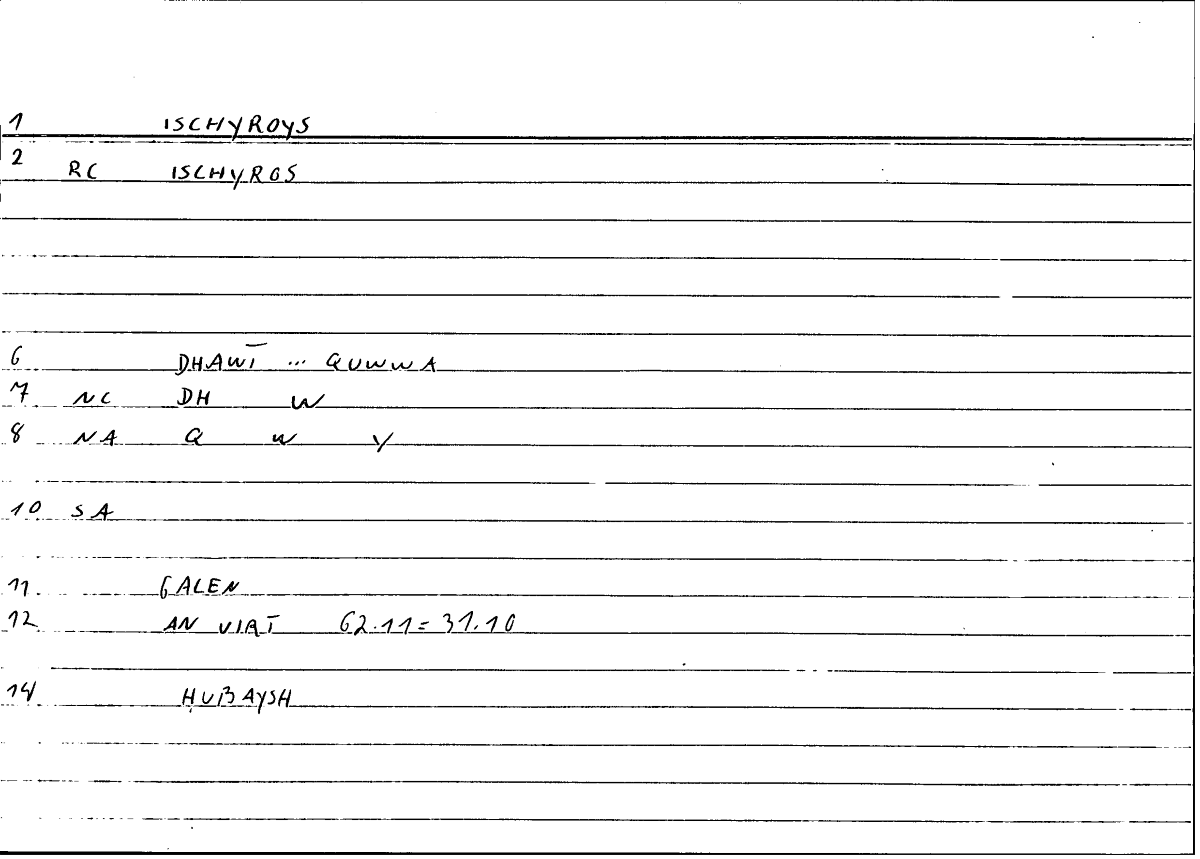 1 ISCHYROYS
2 RC ISCHYROS
6 DHAWĪ ... QUWWA
7 NC DH W
8 NA Q W Y
10 SA
11 GALEN
12 AN VIRT 62.11 = 31.10
14 ḤUBAYSH